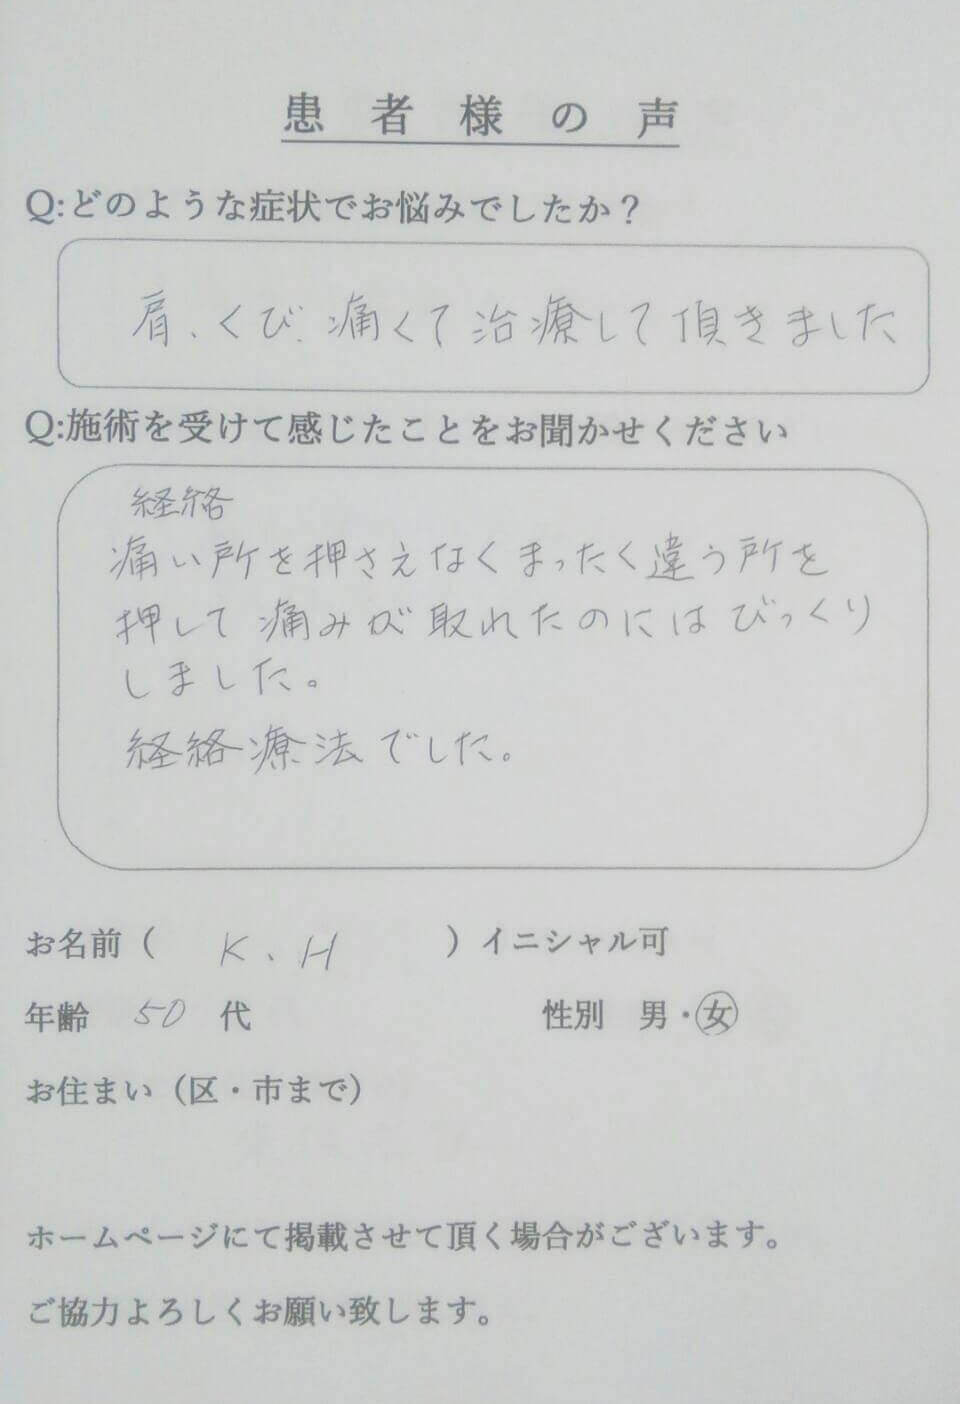 患者様の声
Q:どのような症状でお悩みでしたか？
肩、くび、痛くて治療して頂きました
Q:施術を受けて感じたことをお聞かせください
経絡
痛い所を押さえなくまったく違う所を
押して痛みが取れたのにはびっくり
しました。
経絡療法でした。
お名前（ K、H ）イニシャル可
年齢 50 代 性別 男・女
お住まい（区・市まで）
ホームページにて掲載させて頂く場合がございます。
ご協力よろしくお願い致します。